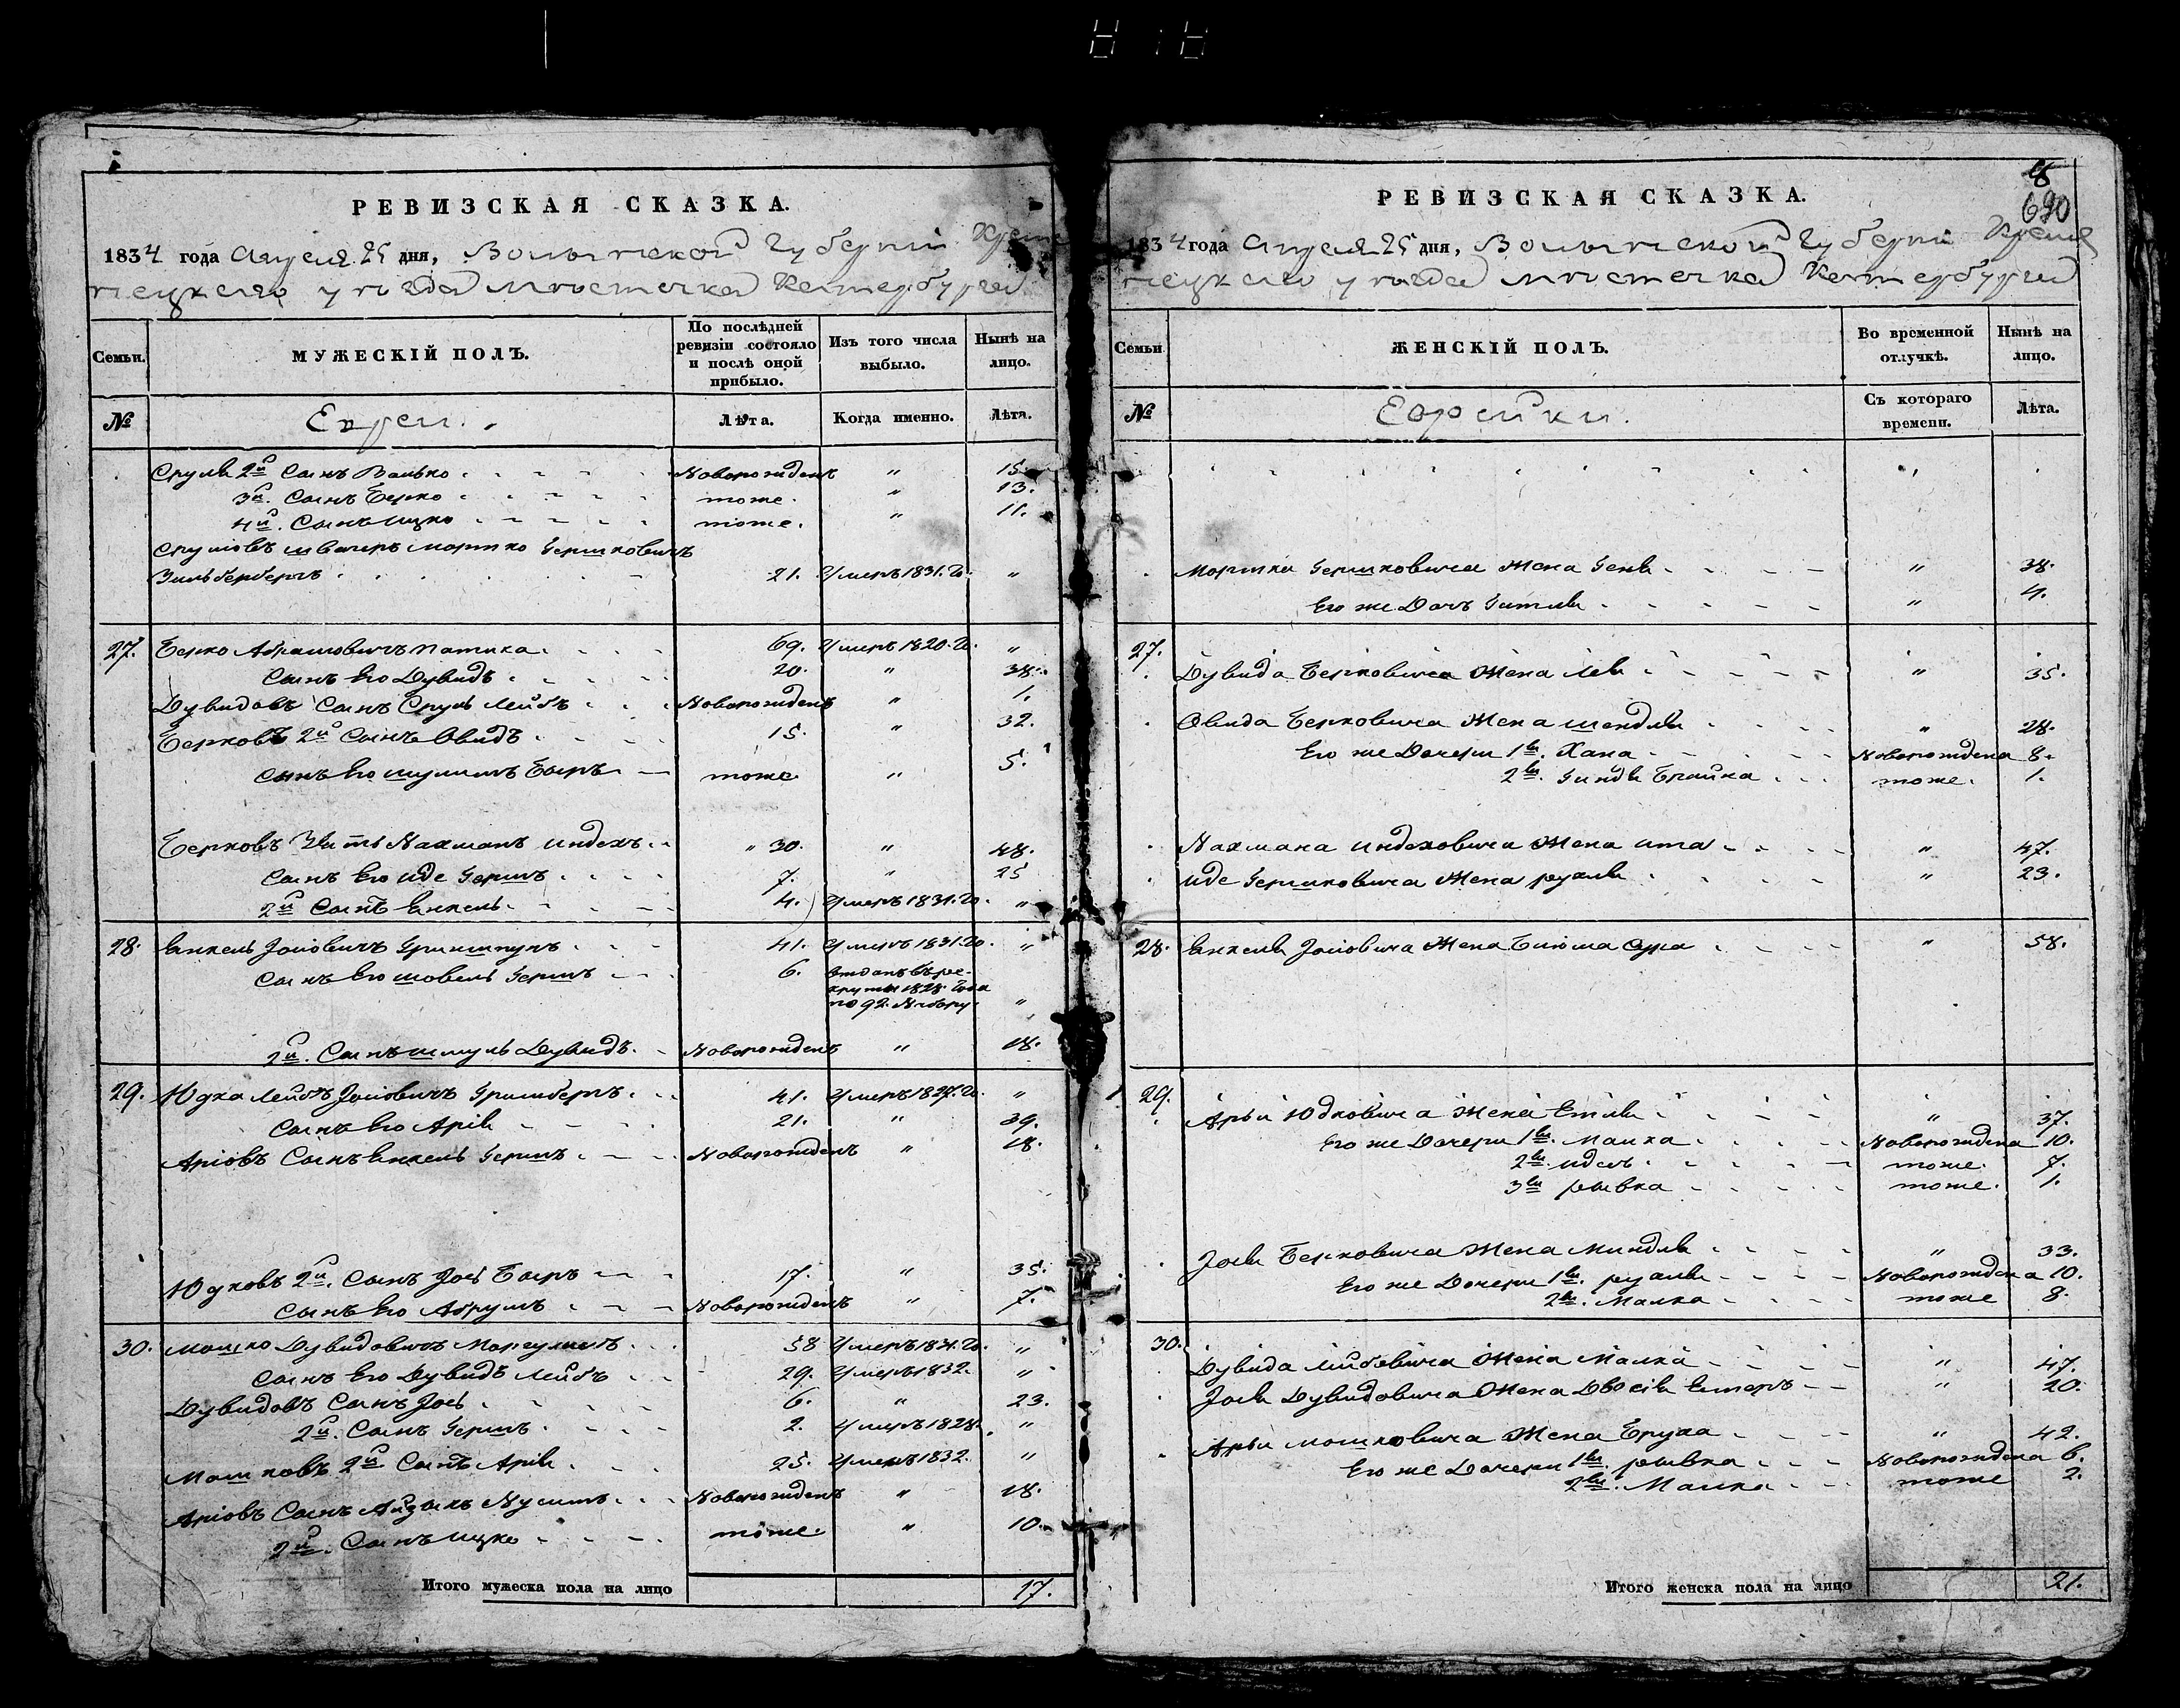 РЕВИЗСКАЯ СКАЗКА.
1834 года Апреля 25 дня, Волынской Губернии Креме
нецкаго уезда местечка Катербурга
Семьи.
МУЖЕСКІЙ ПОЛЪ.
По послѣдней ревизіи состояло и послѣ оной прибыло.
Изъ того числа выбыло.
Нынѣ на лицо.
№
Евреи.
Лѣта.
Когда именно.
Лѣта.
Сруля 2й Сынъ Волько Новорожденъ " 15.
3й. Сынъ Берко тоже. " 13.
4й. Сынъ Ицко тоже. " 11.
Срулювъ швагеръ Мортко Гершковичъ
Зильбербергъ 21. Умеръ 1831. Го. "
27. Берко Абрамовичъ Патика 69. Умеръ 1820. Го. "
Сынъ Его Дувидъ 20. " 38.
Дувидовъ Сынъ Сруль Лейбъ Новорожденъ " 1.
Берковъ 2й Сынъ Овидъ 15. " 32.
Сынъ Его Шулимъ Бэръ тоже " 5.
Берковъ Зять Нахманъ Индехъ " 30. " 48.
Сынъ Его Иде Гершъ 7. " 25
2й Сынъ Енкель 4. Умеръ 1831. Го. "
28. Енкель Іосіовичъ Гриншпунъ 41. Умеръ 1831. Го. "
Сынъ Его Шовель Гершъ 6. Отданъ въ ре-
круты 1828. Года
по 92. Набору "
2й. Сынъ Шмуль Дувидъ Новорожденъ " 18.
29. Юдка Лейбъ Іосіовичъ Гринбергъ 41. Умеръ 1827. Го. "
Сынъ Его Арія 21. " 39.
Аріовъ Сынъ Енкель Гершъ Новорожденъ " 18.
Юдковъ 2й. Сынъ Іось Бэръ 17. " 35.
Сынъ Его Абрумъ Новорожденъ " 7.
30. Мошко Дувидовичъ Маргулисъ 58 Умеръ 1831. Го. "
Сынъ Его Дувидъ Лейбъ 29. Умеръ 1832. "
Дувидовъ Сынъ Іось 6. " 23.
2й. Сынъ Гершъ 2. Умеръ 1828. "
Мошковъ 2й Сынъ Арія 25. Умеръ 1832. "
Аріовъ Сынъ Айзыкъ Нусимъ Новорожденъ " 18.
2й. Сынъ Ицко тоже. " 10.
Итого мужеска пола на лицо 17.
8
690
РЕВИЗСКАЯ СКАЗКА.
1834 года Апреля 25 дня, Волынской Губерни Креме
нецкаго уезда местечка Катербурга
Семьи
ЖЕНСКІЙ ПОЛЪ.
Во временной отлучкѣ.
Нынѣ на лицо.
№
Еврейки.
Съ котораго времени.
Лѣта.
Мортка Гершковича Жена Геня " 38.
Его же Дочь Гитля " 4.
27.
Дувида Берковича Жена Лея " 35.
Овида Берковича Жена Шендля " 28.
Его же Дочери 1я. Хана Новорождена 8.
2я. Гиндя Брайна тоже. 1.
Нахмана Индеховича Жена Ита " 47.
Иде Гершковича Жена Рузля " 23.
28. Енкеля Іосіовича Жена Блюма Сура " 58.
29.
Арьи Юдковича Жена Етля " 37.
Его же Дочери 1я. Малка Новорождена 10.
2я. тоже. 7.
3я Рывка тоже. 1.
Іося Берковича Жена Миндля " 33.
Его же Дочери 1я. Рузля Новорождена 10.
2я. Малка тоже 8.
30.
Дувида Лейбовича Жена Малка " 47.
Іося Дувидовича Жена Двося Естеръ " 20.
Арьи Мошковича Жена Бруха " 42.
Его же Дочери 1я. Рывка Новорождена 6.
2я. Малка тоже 2.
Итого женска пола на лицо 21.